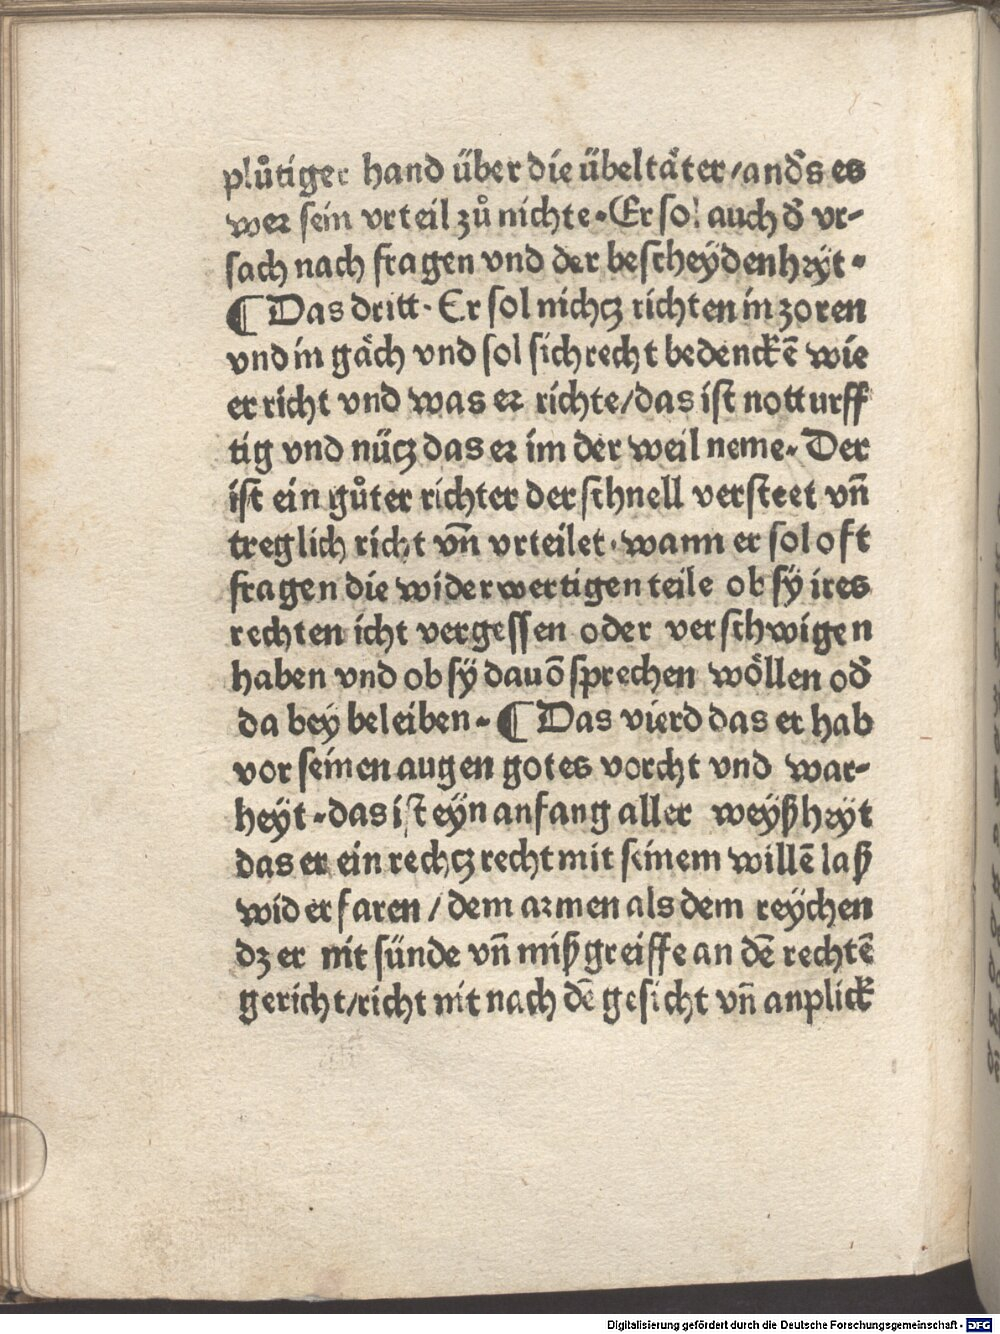 plůtiger hand über die übeltäter/andꝰs es
wer sein vrteil zů nichte. Er sol auch dꝰ vr-
sach nach fragen vnd der bescheydenheyt.
¶ Das dritt. Er sol nichcz richten in zoren
vnd in gäch vnd sol sich recht bedenckē wie
er richt vnd was er richte/das ist notturff
tig vnd nücz das er im der weil neme. Der
ist ein gůter richter der schnell versteet vn̄
treglich richt vn̄ vrteilet. wann er sol oft
fragen die widerwertigen teile ob sÿ ires
rechten icht vergessen oder verschwigen
haben vnd ob sÿ dauō sprechen wöllen odꝰ
da bey beleiben. ¶ Das vierd das er hab
vor seinen augen gotes vorcht vnd war-
heÿt. das ist eÿn anfang aller weÿßheÿt
das er ein rechcz recht mit seinem willē laß
widerfaren / dem armen als dem reÿchen
dz er nit sünde vn̄ mißgreiffe an dē rechtē
gericht/richt nit nach dē gesicht vn̄ anplick
Digitalisierung gefördert durch die Deutsche Forschungsgemeinschaft - DFG